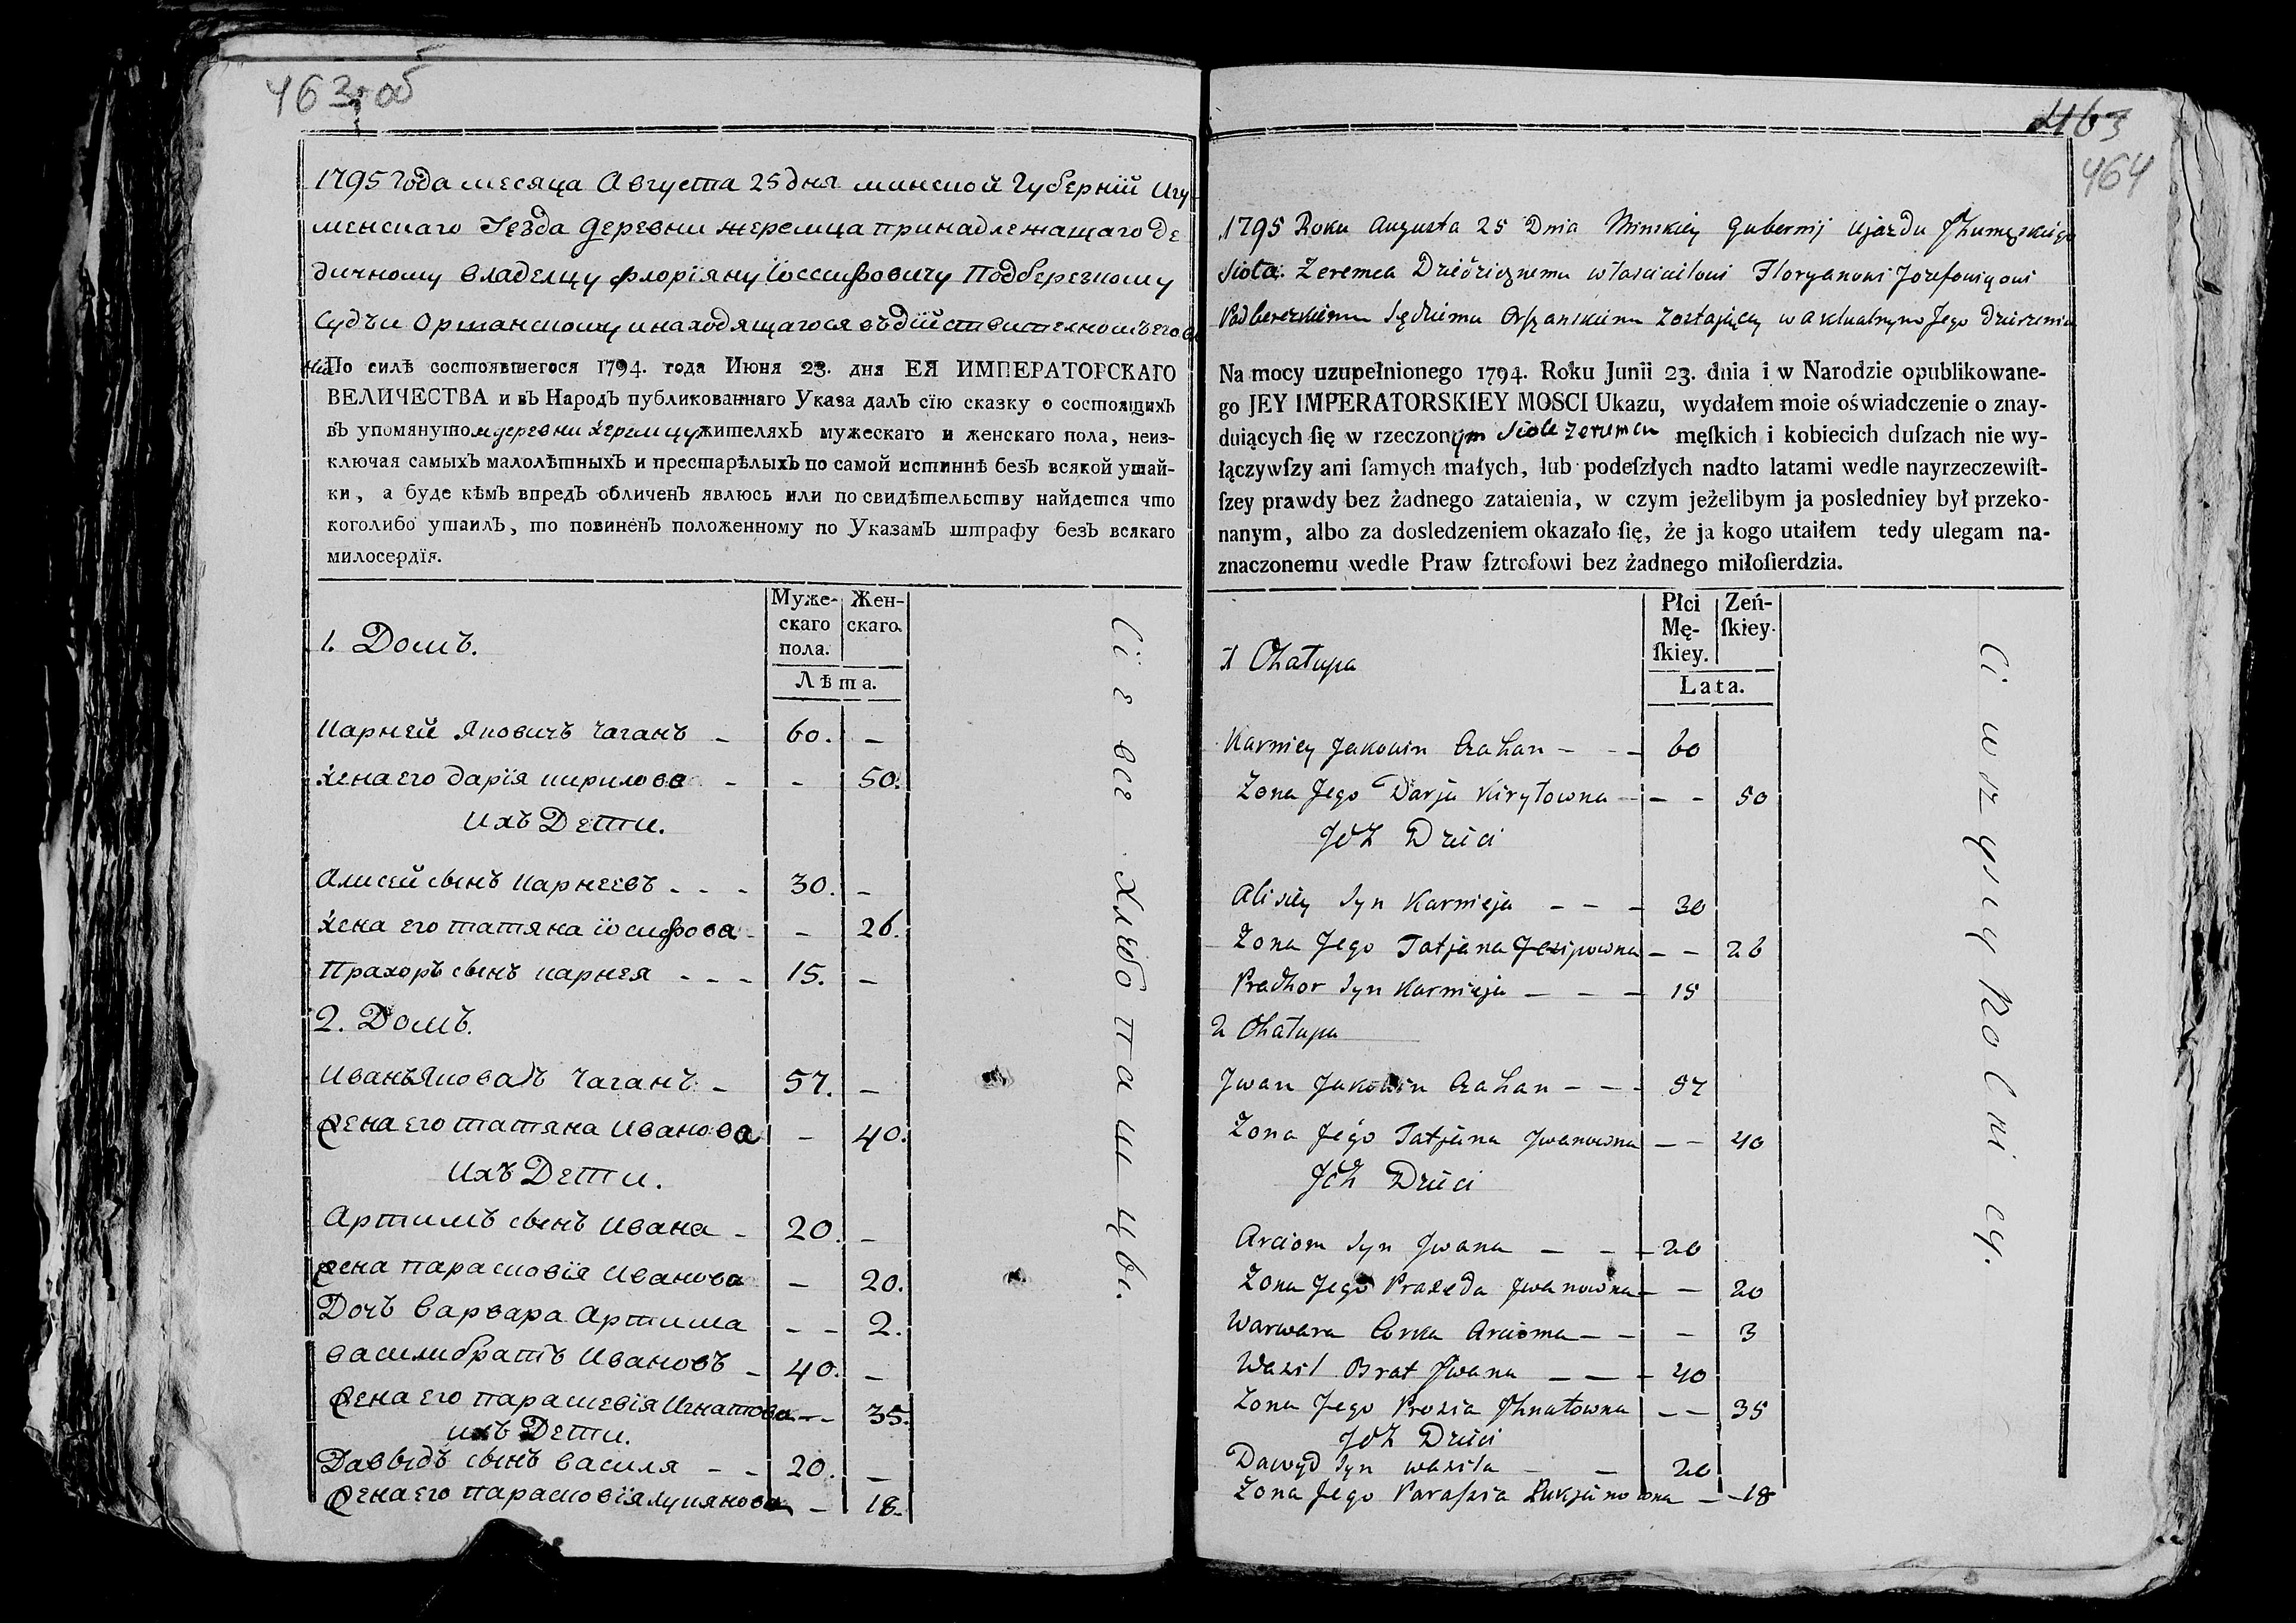 463 об
1795 Года месяца Августа 25 дня минской Губернїй Игу-
менскаго Уезда деревни жеремца принадлежащаго де
дичному владелцу флорїяну Іоссифовичу Подберезкому
Судъи Оршанскому инаходящагося въдїйствителномъ его в
По силѣ состоявшегося 1794. года Июня 23. дня ЕЯ ИМПЕРАТОРСКАГО
ВЕЛИЧЕСТВА и въ Народъ публикованнаго Указа далъ сїю сказку о состоящихъ
въ упомянутом деревни жеремцу жителяхъ мужескаго и женскаго пола, неиз-
ключая самыхъ малолѣтныхъ и престарѣлыхъ по самой истиннѣ безъ всякой утай-
ки, а буде кѣмъ впредъ обличенъ явлюсь или по свидѣтельству найдется что
коголибо утаилъ, то повиненъ положенному по Указамъ штрафу безъ всякаго
милосердїя.
Муже- Жен-
скаго скаго.
пола.
1. Домъ.
Лѣта.
Карней Яковичъ Чаганъ – 60. –
жена его дарїя кирилова – – 50.
ихъ Дети.
Алисей сынъ карнеевъ - - - 30. –
жена его татяна іосифова - – 26.
Прахоръ сынъ карнея - - - 15. –
2. Домъ.
Иванъ Яковаъ Чаганъ – 57. –
жена его татяна Иванова – 40.
ихъ Дети.
Артимъ сынъ Ивана – 20. –
жена парасковїя Иванова – 20.
Дочъ Варвара Артима – – 2.
васили братъ Ивановъ – 40. –
жена его парасшевїя Игнатова – – 35.
ихъ Дети.
Давыдъ сынъ василя – – 20. –
жена его парасковїя лукянова – 18.
Сіе все хлебопашцы.
463
464
1795 Roku Augusta 25 Dnia Minskiey Gubernij Ujazdu Jhumęskiego
Siola Zeremca Dziedzicznemu własciciłowi Floryanowi Jozefowiczowi
Podberezkiemu Sędziemu Orszanskiemu Zostaiącey w Aktualnym Jego Dzierzeniu
Na mocy uzupełnionego 1794. Roku Junii 23. dnia i w Narodzie opublikowane-
go JEY IMPERATORSKIEY MOSCI Ukazu, wydałem moie oświadczenie o znay-
duiących ſię w rzeczonym Siole Zeremcu męſkich i kobiecich duſzach nie wy-
łączywſzy ani ſamych małych, lub podeſzłych nadto latami wedle nayrzeczewiſt-
ſzey prawdy bez żadnego zataienia, w czym jeżelibym ja posledniey był przeko-
nanym, albo za dosledzeniem okazało ſię, że ja kogo utaiłem tedy ulegam na-
znaczonemu wedle Praw ſztrofowi bez żadnego miłoſierdzia.
Płci Zeń-
Mę- ſkiey.
ſkiey.
1 Chałupa
Lata.
Karniey Jakowin Czahan – – – 60
Zona Jego Darja Kiryłowna – – – 50
Jch Dzieci
Alisiey Syn Karnieja – – – 30
Zona Jego Tatjana Jezipowna – – 26
Pradhor Syn Karnieja – – – 15
2 Chałupa
Jwan Jakowin Czahan – – – 57
Zona Jego Tatjana Jwanowna – – 40
Jch Dzieci
Arciom Syn Jwana – – – 20
Zona Jego Praxeda Jwanowna – – 20
Warwara Corka Arcioma – – – 3
Wasil Brat Jwana – – – 40
Zona Jego Prosia Jhnatowna – – 35
Jch Dzieci
Dawyd Syn Wasila – – 20
Zona Jego Paraszia Łukjanowna – – 18
Ci wszyscy Rolnicy.